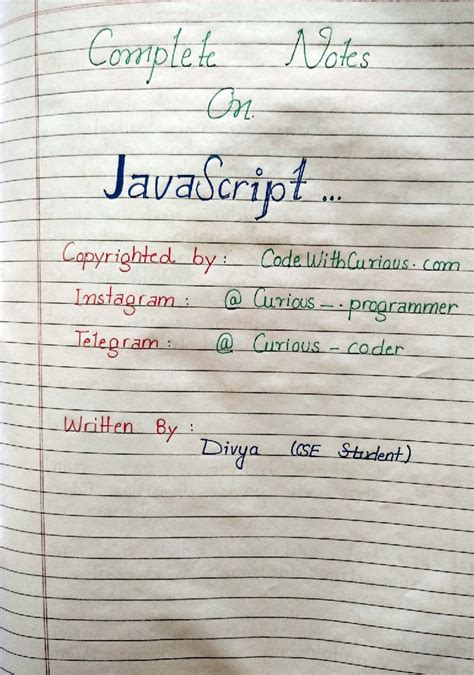 Complete Notes
On.
JavaScript...
Copyrighted by : CodeWithCurious.com
Instagram : @ Curious_.programmer
Telegram : @ Curious_coder
Written By :
Divya (CSE Student)